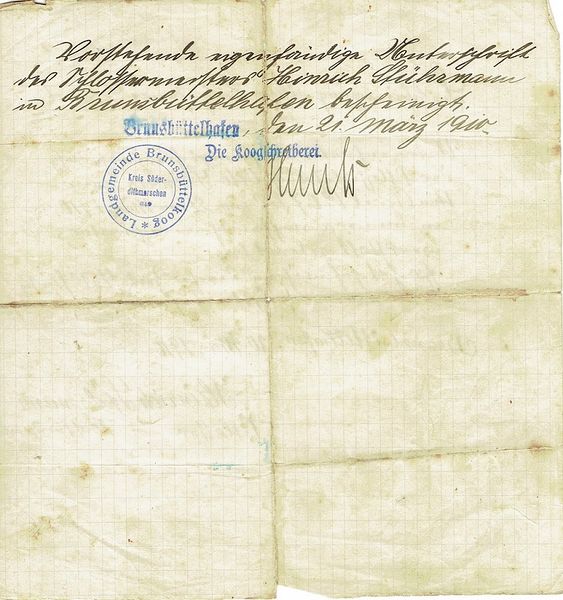 Vorstehende eigenhändige Unterschrift
des Schlossermeisters Hinrich Stührmann
in Brunsbüttelhafen bescheinigt.
Brunsbüttelhafen, den 21. März 1910.
Die Koogschreiberei.
* Landgemeinde Brunsbüttelkoog
Kreis Süder-
dithmarschen